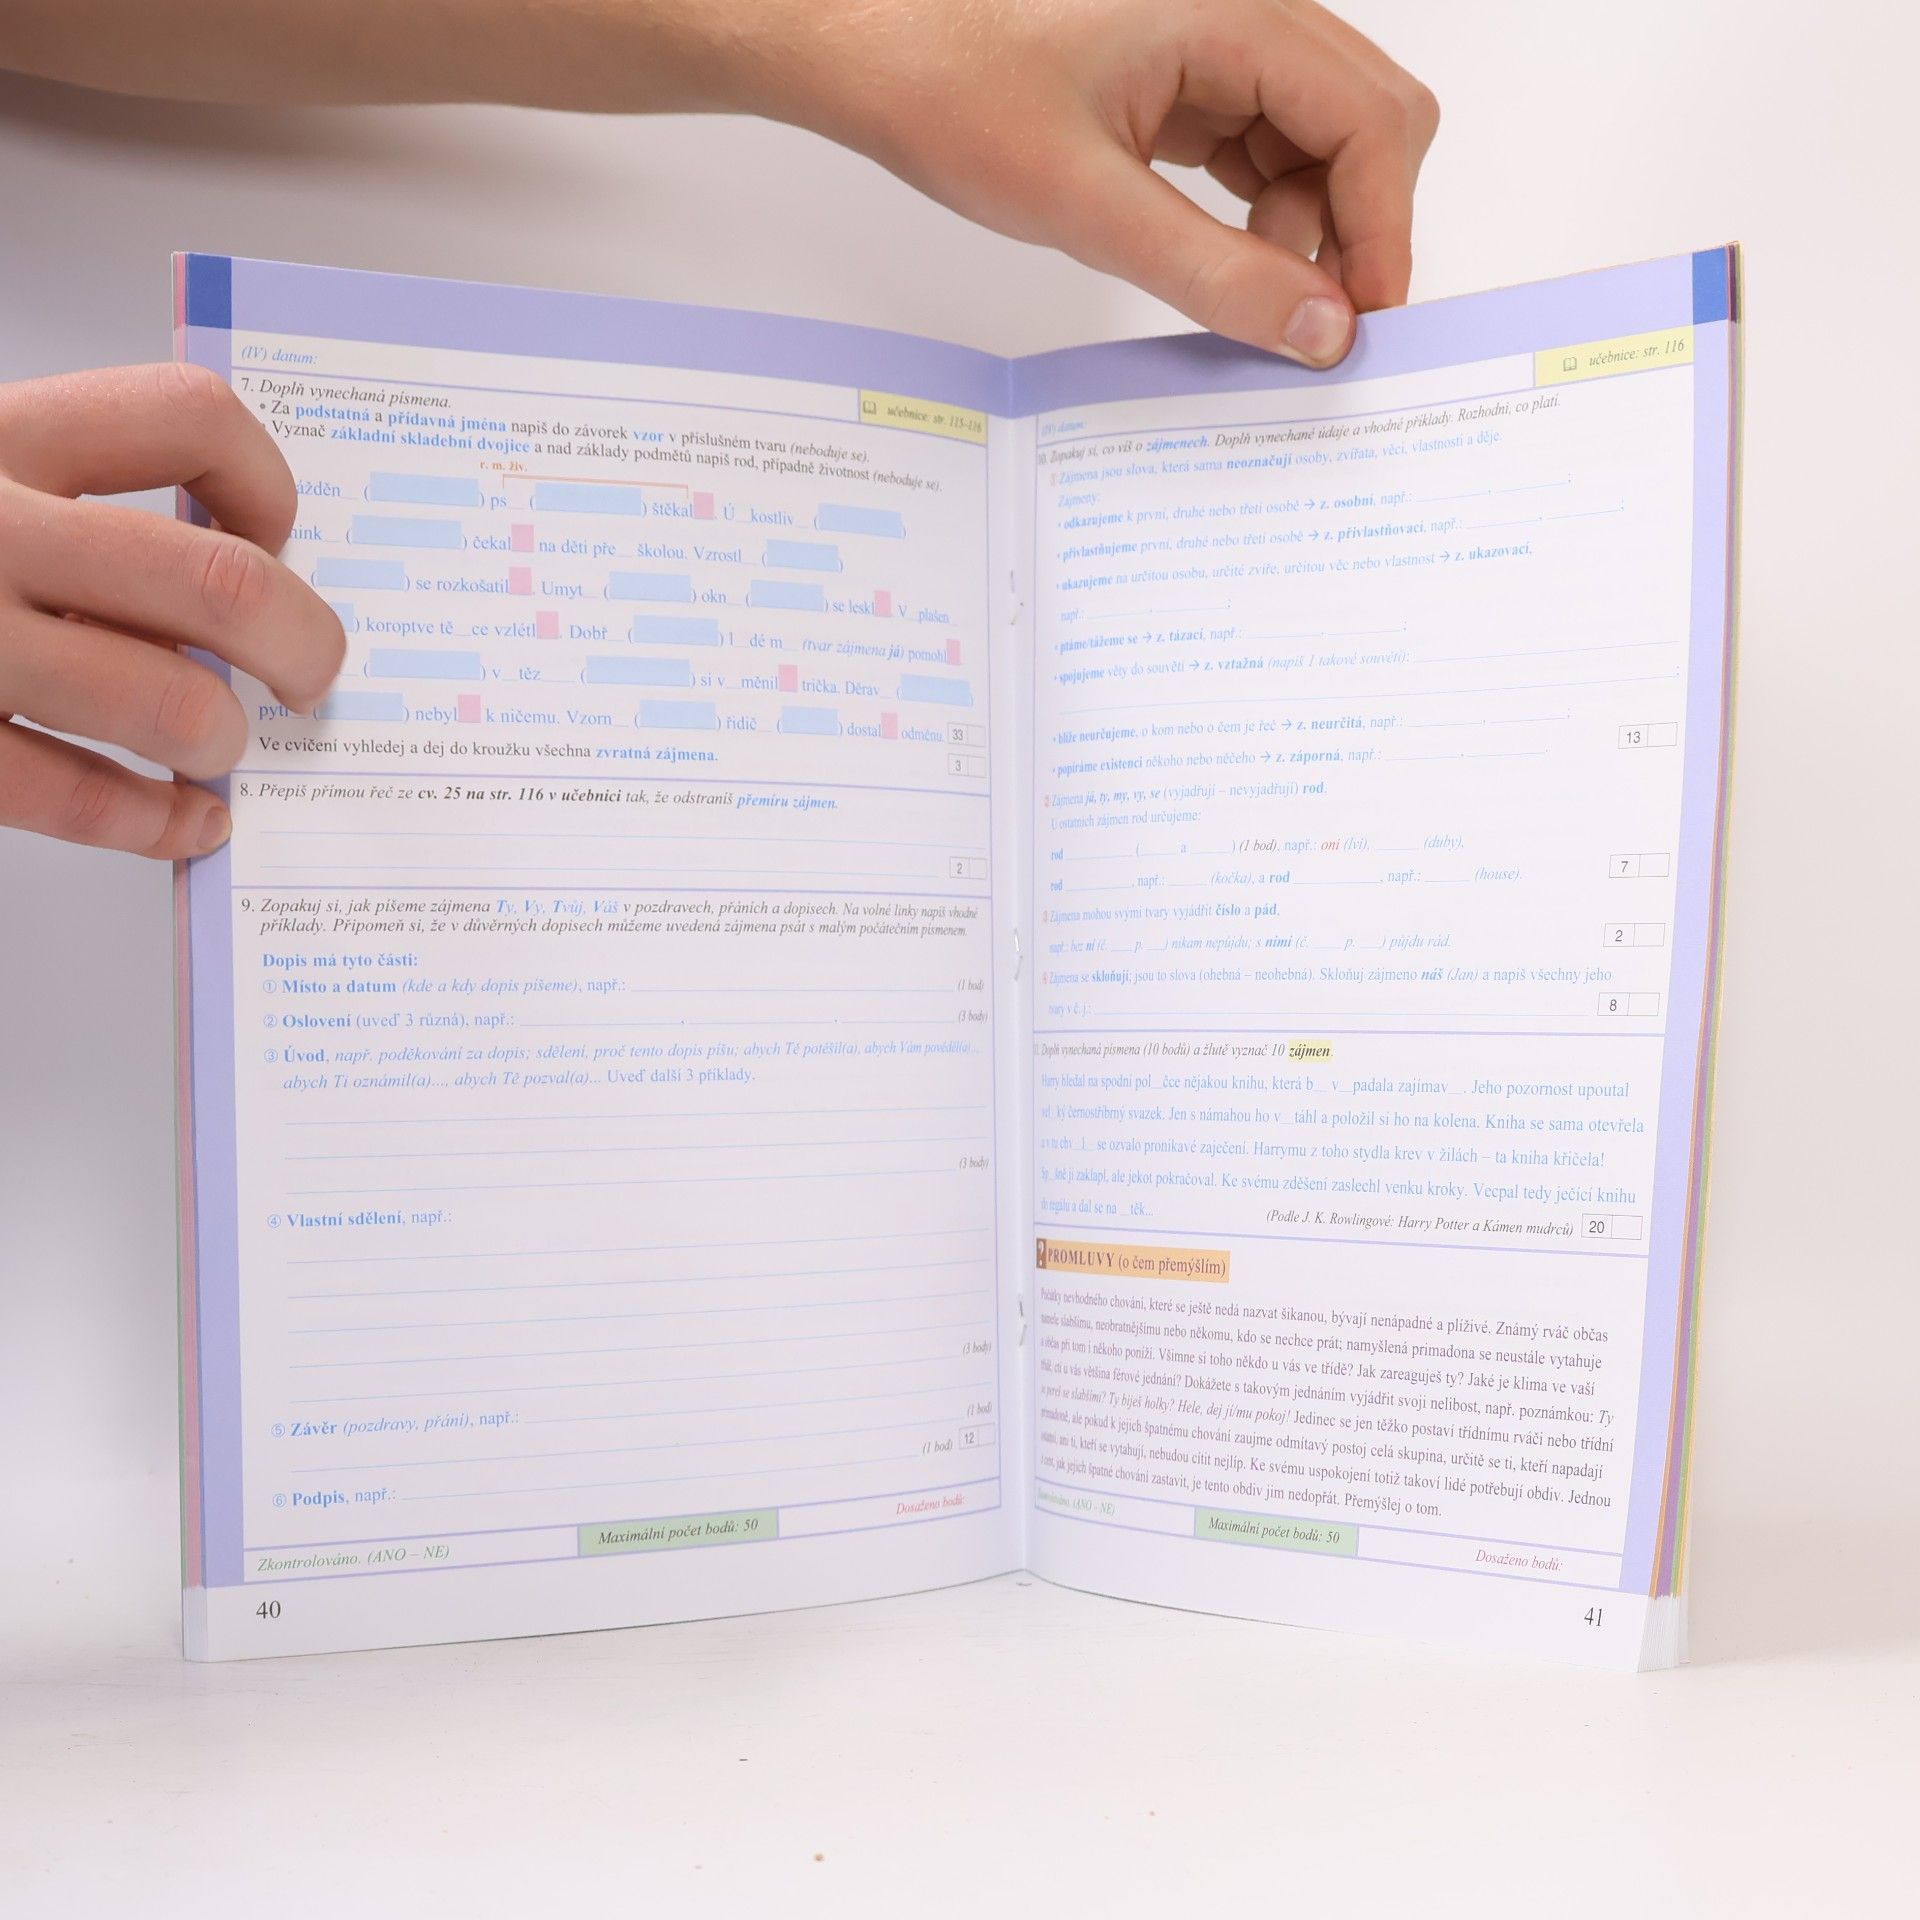 (IV) datum:
7. Doplň vynechaná písmena.
učebnice: str. 115–116
• Za podstatná a přídavná jména napiš do závorek vzor v příslušném tvaru (neboduje se).
Vyznač základní skladební dvojice a nad základy podmětů napiš rod, případně životnost (neboduje se).
r. m. živ.
ážděn__ ( ) ps__ ( ) štěkal . Ú__kostliv__ ( )
ink__ ( ) čekal na děti pře__ školou. Vzrostl__ ( )
( ) se rozkošatil . Umyt__ ( ) okn__ ( ) se leskl . V__plašen__
) koroptve tě__ce vzlétl . Dobř__ ( ) l__dé m__ (tvar zájmena já) pomohl
( ) v__těz__ ( ) si v__měnil trička. Děrav__ ( )
pytl__ ( ) nebyl k ničemu. Vzorn__ ( ) řidič__ ( ) dostal odměnu. 33
Ve cvičení vyhledej a dej do kroužku všechna zvratná zájmena. 3
8. Přepiš přímou řeč ze cv. 25 na str. 116 v učebnici tak, že odstraníš přemíru zájmen.
2
9. Zopakuj si, jak píšeme zájmena Ty, Vy, Tvůj, Váš v pozdravech, přáních a dopisech. Na volné linky napiš vhodné
příklady. Připomeň si, že v důvěrných dopisech můžeme uvedená zájmena psát s malým počátečním písmenem.
Dopis má tyto části:
① Místo a datum (kde a kdy dopis píšeme), např.: (1 bod)
② Oslovení (uveď 3 různá), např.: , , (3 body)
③ Úvod, např. poděkování za dopis; sdělení, proč tento dopis píšu; abych Tě potěšil(a), abych Vám pověděl(a)...,
abych Ti oznámil(a)..., abych Tě pozval(a)... Uveď další 3 příklady.
(3 body)
④ Vlastní sdělení, např.:
(3 body)
⑤ Závěr (pozdravy, přání), např.: (1 bod)
(1 bod) 12
⑥ Podpis, např.:
Dosaženo bodů:
Maximální počet bodů: 50
Zkontrolováno. (ANO – NE)
40
učebnice: str. 116
(IV) datum:
10. Zopakuj si, co víš o zájmenech. Doplň vynechané údaje a vhodné příklady. Rozhodni, co platí.
① Zájmena jsou slova, která sama neoznačují osoby, zvířata, věci, vlastnosti a děje.
Zájmeny:
• odkazujeme k první, druhé nebo třetí osobě → z. osobní, např.: , ;
• přivlastňujeme první, druhé nebo třetí osobě → z. přivlastňovací, např.: , ;
• ukazujeme na určitou osobu, určité zvíře, určitou věc nebo vlastnost → z. ukazovací,
např.: , ;
• ptáme/tážeme se → z. tázací, např.: , ;
• spojujeme věty do souvětí → z. vztažná (napiš 1 takové souvětí):
;
• blíže neurčujeme, o kom nebo o čem je řeč → z. neurčitá, např.: , ;
• popíráme existenci někoho nebo něčeho → z. záporná, např.: , . 13
② Zájmena já, ty, my, vy, se (vyjadřují – nevyjadřují) rod.
U ostatních zájmen rod určujeme:
rod ( a ) (1 bod), např.: oni (lvi), (duby),
rod , např.: (kočka), a rod , např.: (house). 7
③ Zájmena mohou svými tvary vyjádřit číslo a pád,
např.: bez ní (č. p. ) nikam nepůjdu; s nimi (č. p. ) půjdu rád. 2
④ Zájmena se skloňují; jsou to slova (ohebná – neohebná). Skloňuj zájmeno náš (Jan) a napiš všechny jeho
tvary v č. j.: 8
11. Doplň vynechaná písmena (10 bodů) a žlutě vyznač 10 zájmen.
Harry hledal na spodní pol__čce nějakou knihu, která b__ v__padala zajímav__. Jeho pozornost upoutal
vel__ký černostříbrný svazek. Jen s námahou ho v__táhl a položil si ho na kolena. Kniha se sama otevřela
a v tu chv__l__ se ozvalo pronikavé zaječení. Harrymu z toho stydla krev v žilách – ta kniha křičela!
Sp__šně ji zaklapl, ale jekot pokračoval. Ke svému zděšení zaslechl venku kroky. Vecpal tedy ječící knihu
do regálu a dal se na __těk...
(Podle J. K. Rowlingové: Harry Potter a Kámen mudrců) 20
? PROMLUVY (o čem přemýšlím)
Počátky nevhodného chování, které se ještě nedá nazvat šikanou, bývají nenápadné a plíživé. Známý rváč občas
slabšímu, neobratnějšímu nebo někomu, kdo se nechce prát; namyšlená primadona se neustále vytahuje
a občas při tom i někoho poníží. Všimne si toho někdo u vás ve třídě? Jak zareaguješ ty? Jaké je klima ve vaší
třídě, ctí u vás většina férové jednání? Dokážete s takovým jednáním vyjádřit svoji nelibost, např. poznámkou: Ty
se pereš se slabšími? Ty biješ holky? Hele, dej jí/mu pokoj! Jedinec se jen těžko postaví třídnímu rváči nebo třídní
primadoně, ale pokud k jejich špatnému chování zaujme odmítavý postoj celá skupina, určitě se ti, kteří napadají
ostatní, ani ti, kteří se vytahují, nebudou cítit nejlíp. Ke svému uspokojení totiž takoví lidé potřebují obdiv. Jednou
z cest, jak jejich špatné chování zastavit, je tento obdiv jim nedopřát. Přemýšlej o tom.
Zkontrolováno. (ANO – NE)
Maximální počet bodů: 50
Dosaženo bodů:
41